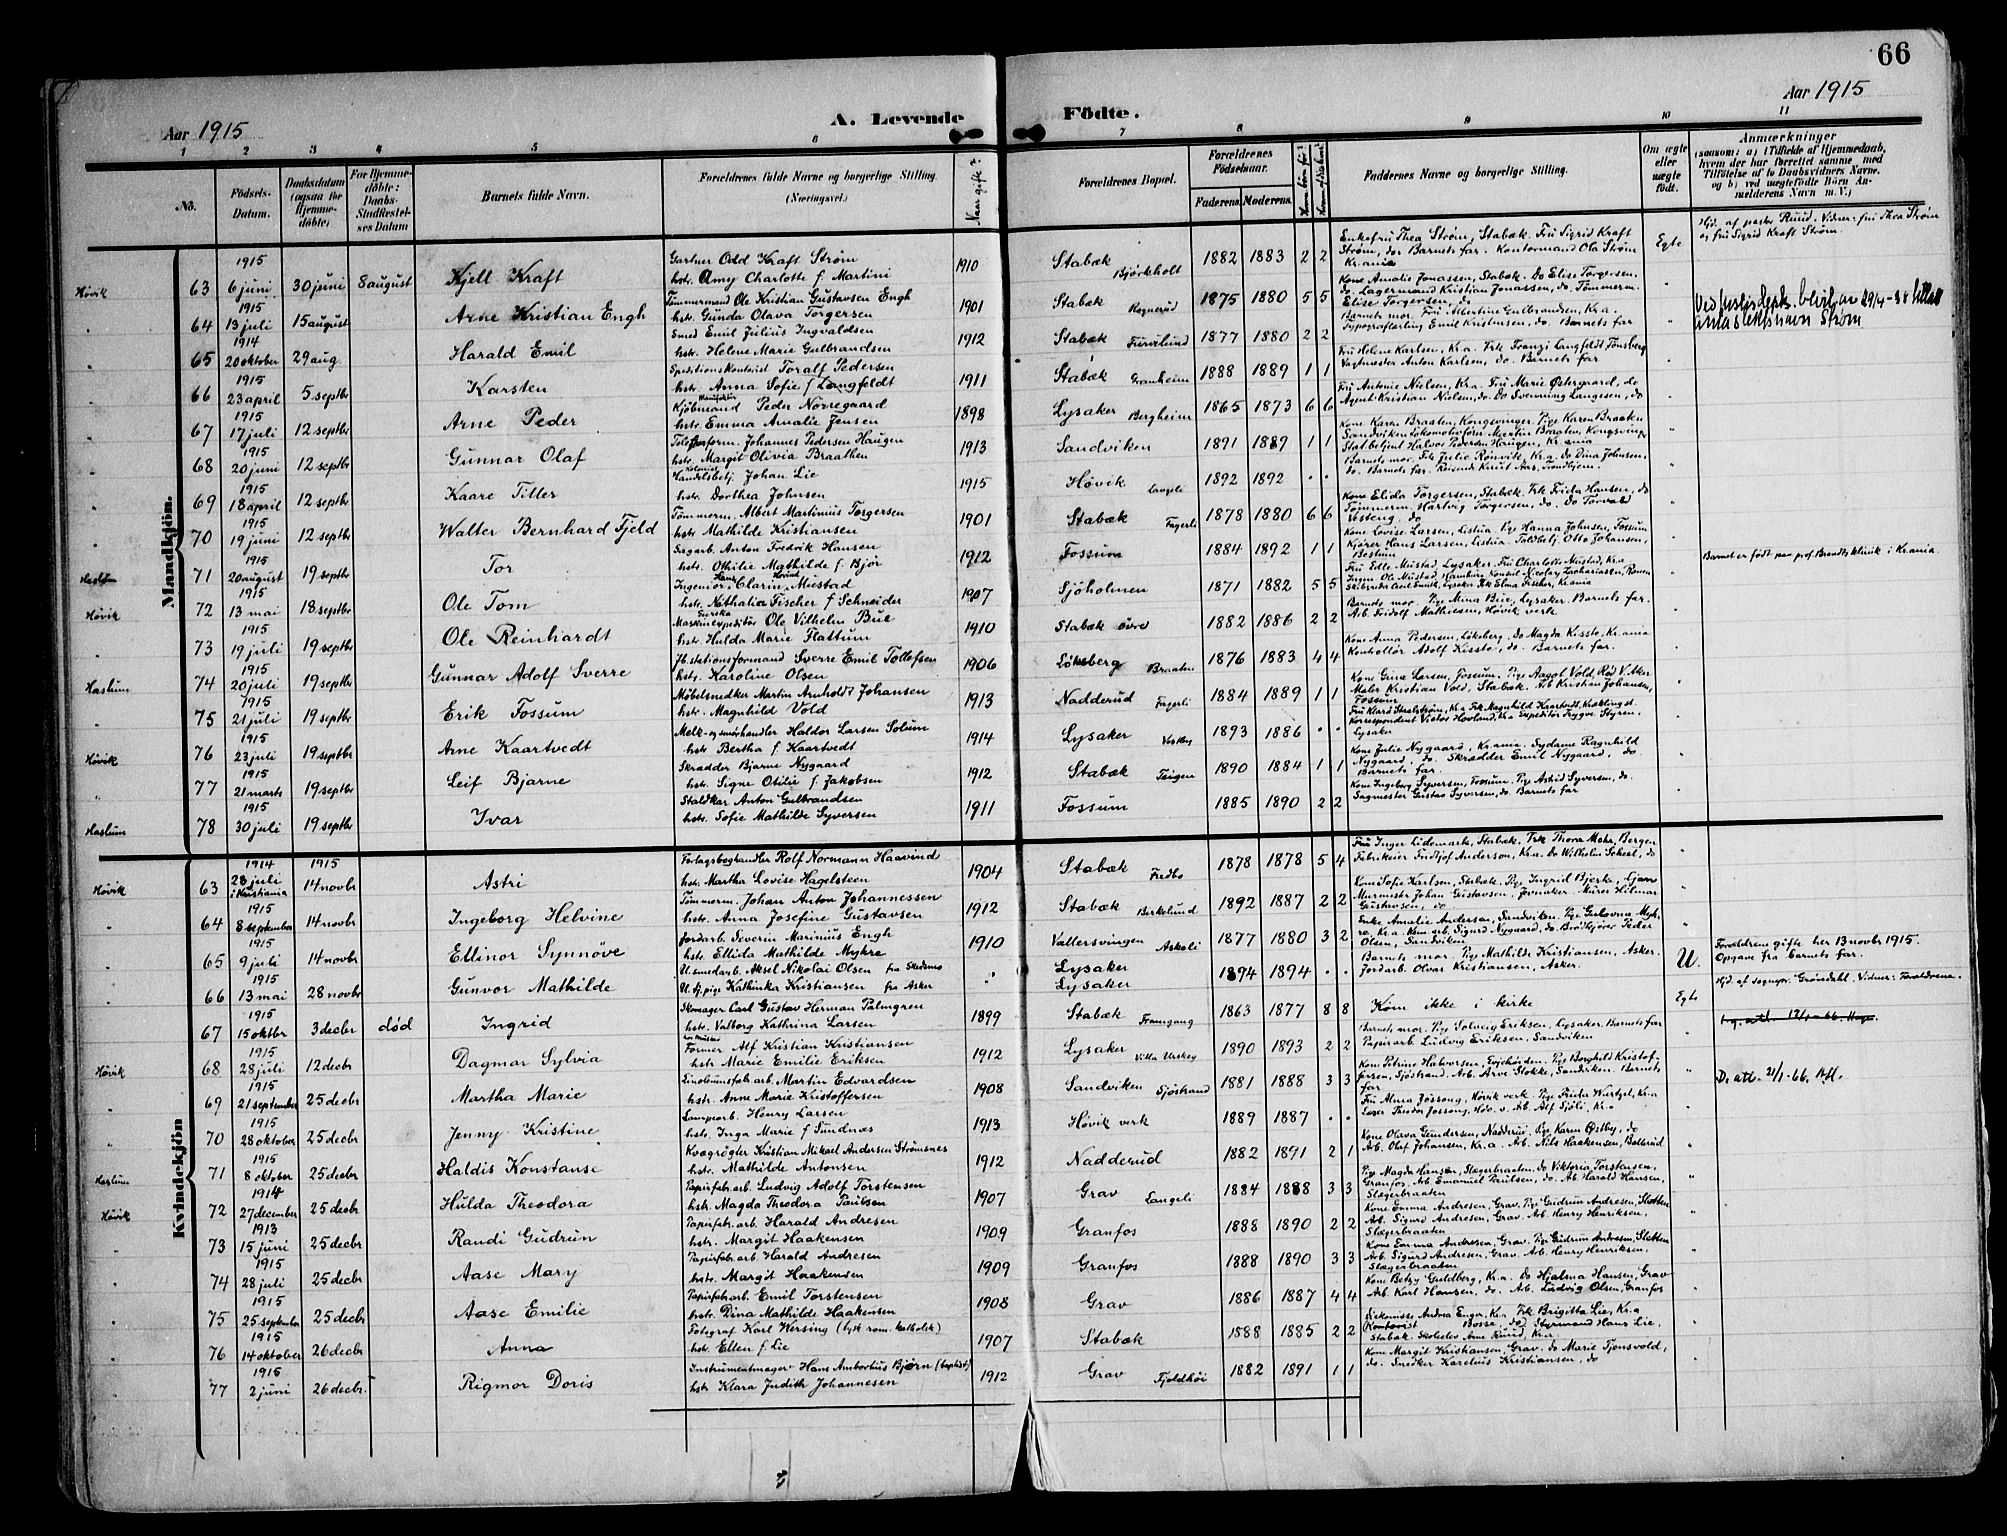 66
Aar 1915
A. Levende
Födte.
Aar 1915
1 2 3 4 5 6 7 8 9 10 11
No.
Födsels-Datum.
Daabsdatum (ogsaa for Hjemmedåbte)
For Hjemmedåbte: Daabs-Stadfestelses Datum
Barnets fulde Navn.
Forældrenes fulde Navne og borgerlige Stilling. (Næringsvei.)
Naar gifte?
Forældrenes Bopæl.
Forældrenes Födselsaar.
Faderens. Moderens.
Faddernes Navne og borgerlige Stilling.
Om ægte eller uægte født.
Anmærkninger
(saasom: a) i Tilfælde af Hjemmedaab, hvem der har forrettet samme med Tilföielse af to Daabsvidners Navne. og b) ved uægtefödte Börn Anmelderens Navn m. V.)
Mandkjön.
Hövik 63 1915 6 juni 30 juni 8 august Kjell Kraft Gartner Odd Kraft Strøm hstr. Amy Charlotte f Martini 1910 Stabæk Bjørkholt 1882 1883 2 2 Enkefru Thea Strøm, Stabæk. Fru Sigrid Kraft Strøm, do. Barnets far. Kontormand Ole Strøm Kr.ania Egte Hjd. af pastor Ruud. Vidner: fru Thea Strøm og fru Sigrid Kraft Strøm.
64 1915 13 juli 15 august Arne Kristian Engh Tømmermand Ole Kristian Gustavsen Engh hstr. Gunda Olava Torgersen 1901 Stabæk Ragnerud 1875 1880 5 5 Kone Amalie Jonassen, Stabæk. Do Elise Torgersen, do. Lagermand Kristian Jonassen, do. Tømmerm. Elise Torgersen, do
65 1914 20 oktober 29 aug. Harald Emil Smed Emil Julius Ingvaldsen hstr. Helene Marie Gulbrandsen 1912 Stabæk Furulund 1877 1880 2 2 Barnets mor. Fru Albertine Gulbrandsen, Kr.a. Typograflærling Emil Kristensen, do. Barnets far
66 1915 23 april 5 septbr Karsten Speditionskontorist Toralf Pedersen hstr. Anna Sofie f Langfeldt 1911 Stabæk Granheim 1888 1889 1 1 Fru Helene Karlsen, Kr.a. Frk Franzi Langfeldt, Tönsberg Vagtmester Anton Karlsen, do. Barnets far
67 1915 17 juli 12 septbr Arne Peder Kjöbmand Peder Norregaard hstr. Emma Amalie Jensen 1898 Lysaker Bergheim 1865 1873 6 6 Fru Antonie Nielsen, Kr.a. Fru Marie Østergaard, do Agent Kristian Nielsen, do. Do Svenning Langesen, do
68 1915 20 juni 12 septbr Gunnar Olaf Telefonform. Johannes Pedersen Haugen hstr. Margit Olivia Braathen 1913 Sandviken 1891 1889 1 1 Kone Karen Braaten, Kongsvinger. Pige Karen Braaten Sandviken Lokomotivförer Martin Braaten, Kongsvinger Statbetjent Halvor Pedersen Haugen, Kr.ania
69 1915 18 april 12 septbr Kaare Tiller Handelsbetj. Johan Lie hstr. Dorthea Johnsen 1915 Hövik Langeli 1892 1892 . . Barnets mor. Frk Julie Rönvik, Kr.a. do Dina Johnsen, do. Barnets far. Reisende Knut Aas, Trondhjem.
70 1915 19 juni 12 septbr Walter Bernhard Fjeld Tömmerm. Albert Martinius Torgersen hstr. Mathilde Kristiansen 1901 Stabæk Fagerli 1878 1880 6 6 Kone Elida Torgersen, Stabæk. Frk Frida Hansen, do Tömmerm. Hartvig Torgersen, do. Do Torvald Vesteng, do
Haslum 71 1915 20 august 19 septbr Tor Sagarb. Anton Fredrik Hansen hstr. Othilie Mathilde f. Bjør 1912 Fossum 1884 1892 1 1 Kone Lovise Larsen, Listua. Pige Hanna Johnsen, Fossum. Kjörer Hans Larsen, Listua. Toldbetj. Otto Johansen, Bestum Barnet er født paa prof. Brandts klinik i Kr.ania
Hövik 72 1915 13 mai 18 septbr Ole Tom Ingeniör Hans Clarin Hovind Mustad hstr. Nathalia Fischer f Schneider 1907 Sjöholmen 1871 1882 5 5 Fru Edle Mustad, Lysaker. Fru Charlotte Mustad, Kr.a
73 1915 19 juli 19 septbr Ole Reinhardt Maskinexpeditör Ole Vilhelm Bue hstr. Hulda Marie Flattum 1910 Stabæk övre 1882 1886 2 2 Barnets mor. Pige Anna Bue, Lysaker. Barnets far. Arb. Fridolf Mathiesen, Hövik verk
Haslum 74 1915 20 juli 19 septbr Gunnar Adolf Sverre Jb. stationsformand Sverre Emil Tollefsen hstr. Karoline Olsen 1906 Løkeberg Braaten 1876 1883 4 4 Kone Anna Pedersen, Løkeberg. do Magda Kissto, Kr.ania Kontrollör Adolf Kissto, do. Barnets far.
75 1915 21 juli 19 septbr Erik Fossum Möbelsnedker Martin Arnholdt Johansen hstr. Magnhild Vold 1913 Nadderud Fagerli 1884 1889 1 1 Kone Gina Larsen, Fossum. Pige Aagot Vold, Röd V. Aker Maler Kristian Vold, Stabæk. Arb Kristian Johansen, Fossum
Hövik 76 1915 23 juli 19 septbr Arne Kaartvedt Melk- og smörhandler Haldor Larsen Solum hstr. Bertha f Kaartvedt 1914 Lysaker Vestby 1893 1886 . . Korrespondent Victor Hovland, Kr.a Expeditör Trygve Styren. Lysaker
77 1915 21 marts 19 septbr Leif Bjarne Skrædder Bjarne Nygaard hstr. Signe Otilie f Jakobsen 1912 Stabæk Teigen 1890 1884 1 1 Kone Julie Nygaard, Kr.ania. Sydame Ragnhild Nygaard, do. Skrædder Emil Nygaard, do. Barnets far.
Haslum 78 1915 30 juli 19 septbr Ivar Staldkar Anton Gulbrandsen hstr. Sofie Mathilde Syversen 1911 Fossum 1885 1890 2 2 Kone Ingeborg Syversen, Fossum. Pige Astrid Syversen, do. Sagmester Gustav Syversen, do. Barnets far
Kvindekjön
Hövik 63 1914 28 juli i Kristiania 1915 14 novbr Astri Forlagsboghandler Rolf Normann Haavind hstr. Martha Lovise Hagelsteen 1904 Stabæk Fredbo 1878 1878 5 4 Fru Inger Lidemark, Stabæk. Frk Thora Mohr, Bergen Fabrikeier Fridtjof Anderson, Kr.a. Do Wilhelm Scheel, do
64 1915 8 september 14 novbr Ingeborg Helvine Tömmerm. Johan Anton Johannessen hstr. Anna Josefine Gustavsen 1912 Stabæk Birkelund 1892 1887 2 2 Kone Sofie Karlsen, Stabæk. Pige Ingrid Bjerke, Gjøvr Murmester Johan Gustavsen, Jevnaker. Murer Hilmar Gustavsen, do
65 1915 9 juli 14 novbr Ellinor Synnöve Jordarb. Severin Marinius Engh hstr. Ellida Mathilde Myhre 1910 Vallersvingen Askeli 1877 1880 3 2 Enke Amalie Andersen, Sandviken. Kr.a. Kom. arb. Sigurd Nygaard, do. Brödkjörer Peder Olsen, Sandviken
66 1915 13 mai 28 novbr Gunvor Mathilde U. smedarb. Aksel Nikolai Olsen fra Skedsmo U. tj. pige Kathinka Kristiansen fra Asker Lysaker Lysaker 1894 1894 . . Barnets mor. Pige Mathilde Kristiansen, Asker. Jordarb. Olvar Kristiansen, Asker. U. Forældrene gifte her 13 novbr 1915. Opgave fra barnets far.
67 1915 15 oktbr 3 decbr död Ingrid Skomager Carl Gustav Herman Palmgren hstr. Valborg Kathrina Larsen 1899 Stabæk Framgang 1863 1877 8 8 Kom ikke i kirke Egte Hjd. af sognepr. Gröndahl. Vidner: Forældrene.
Hövik 68 1915 28 juli 12 decbr Dagmar Sylvia Former Alf Kristian Kristiansen hstr. Marie Emilie Eriksen 1912 Lysaker Villa Utskog 1890 1893 2 2 Barnets mor. Pige Solveig Eriksen, Lysaker. Barnets far Papirarb. Ludvig Eriksen, Sandviken
69 1915 21 september 25 decbr Martha Marie Linoleumsfabr. arb. Martin Edvardsen hstr. Anne Marie Kristoffersen 1908 Sandviken Sjöstrand 1881 1888 3 3 Kone Petrine Halvorsen, Pige Borghild Kristoffersen, Sjöstrand. Arb. Arve Stokke, Sandviken. Barnets far D. atl. 21/1-66.
70 1915 28 oktober 25 decbr Jenny Kristine Lampearb. Henry Larsen hstr. Inga Marie f Sundnæs 1913 Hövik verk 1889 1887 . . Fru Anna Jossong, Hövik verk. Pige Frida Wurtzel, Kr.a
Haslum 71 1915 8 oktober 25 decbr Haldis Konstanse Kvægrögter Kristian Mikael Andersen Strömsnes hstr. Mathilde Antonsen 1912 Nadderud 1882 1891 2 1 Kone Olava Gundersen, Nadderud. Pige Karen Østby, do Arb. Olaf Johansen, Kr.a. Arb. Nils Haakensen, Ballerud
Hövik 72 1914 27 december 25 decbr Hulda Theodora Papirfabr. arb. Ludvig Adolf Torstensen hstr. Magda Theodora Paulsen 1907 Grav Langeli 1884 1888 3 3 Pige Magda Hansen, Slægerbraaten, do Viktoria Torstensen, Granfos. Arb Emanuel Paulsen, do. Arb. Harald Hansen, Slægerbraaten
73 1913 15 juni 25 decbr Randi Gudrun Papirfabr. arb. Harald Andresen hstr. Margit Haakensen 1909 Granfos 1888 1890 2 2 Kone Emma Andresen, Grav. Pige Gudrun Andresen, Slotten Arb. Sigurd Andresen, Grav. Arb. Henry Henriksen, Slægerbraaten
74 1915 28 juli 25 decbr Aase Mary Papirfabr. arb. Harald Andresen hstr. Margit Haakensen 1909 Granfos 1888 1890 3 3 Kone Emma Andresen, Grav. Pige Gudrun Andresen, Slotten Arb. Sigurd Andresen, Grav. Arb. Henry Henriksen, Slægerbraaten
75 1915 25 september 25 decbr Aase Emilie Papirfabr. arb. Emil Torstensen hstr. Dina Mathilde Haakensen 1908 Grav 1886 1887 4 4 Kone Betzy Guldberg, Kr.a. Do Hjalma Hansen, Grav Arb. Karl Hansen, do. Arb. Ludvig Olsen, Granfos
76 1915 14 oktober 26 decbr Anna Fotograf Karl Wersing (tysk rom. katholik) hstr. Ellen f. Lie 1907 Stabæk 1888 1885 2 2 Frk. Brigitta Lie, Kr.a Styrmand Hans Lie, Stabæk. Skoleelev Arne Ruud, Kr.a.
77 1915 2 juni 26 decbr. Rigmor Doris Instrumentmager Hans Ambortius Björn (baptist) hstr Klara Judith Johannesen 1912 Grav Fjeldhöi 1882 1891 1 1 Kone Margit Kristiansen, Grav. do Marie Tjønsvold, do. Snedker Karelius Kristiansen, do